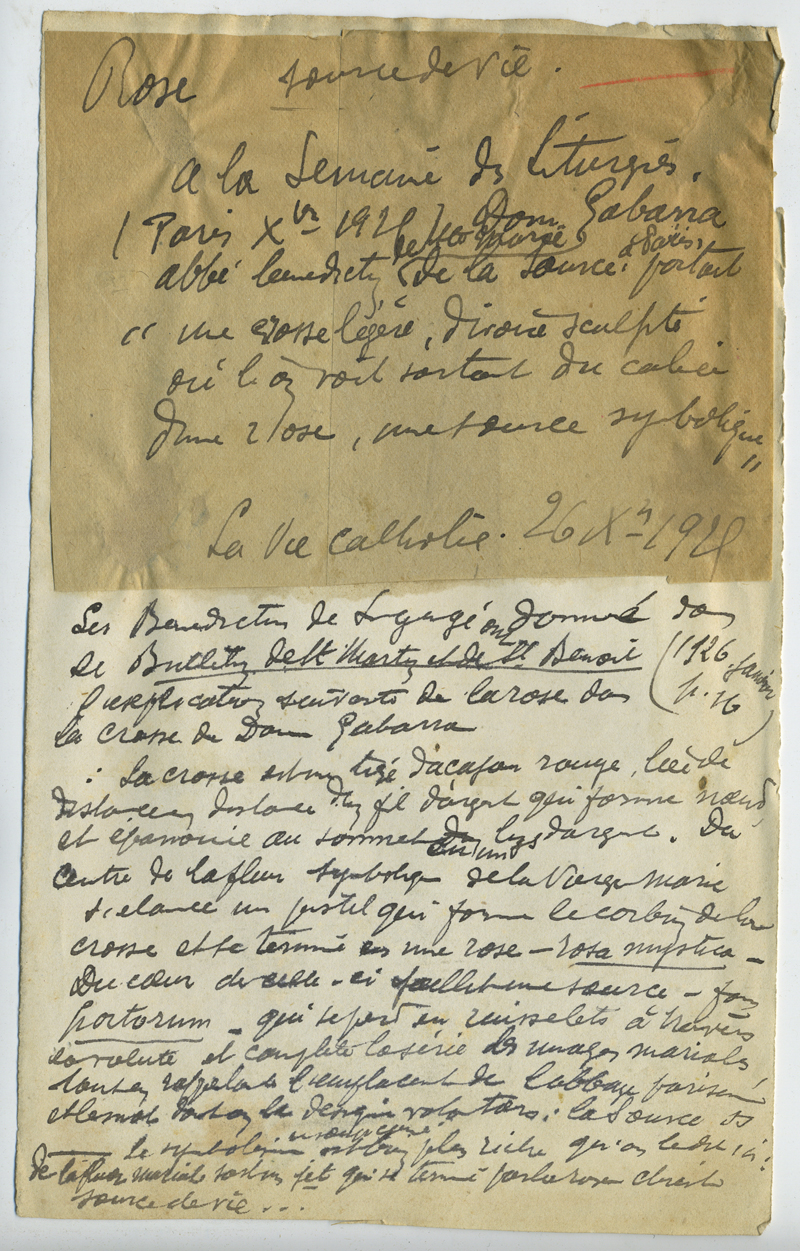 Rose source de vie.
a la Semaine de Liturgies.
(Paris Xbre 192 ) Dom Gabarra
de Ste Marie à Paris
abbé bénédictin de la source, portant
"une crosse légère, d'ivoire sculpté
où l'on voit sortant du calice
d'une rose, une source symbolique"
La Vie catholic. 26 Xbre 192
Les Benedictins de Ligugé ont donné dans
le Bulletin de St Martin et de St Benoit (1926 Janvier
l'explication suivante de la rose dans p. 16)
la crosse de Dom Gabarra
: La crosse est une tige d'acajou rouge, liée de
distance en distance d'un fil d'argent qui forme nœud,
et épanouie au sommet en un lys d'argent. Du
centre de la fleur symbolique de la Vierge Marie
s'élance un pistil qui forme le corbin de la
crosse et se termine en une rose - rosa mystica -
Du cœur de celle-ci jaillit une source - fons
hortorum - qui se perd en ruisselets à travers
la volute et complète la série des images mariales,
tout en rappelant l'emplacement de l'abbaye parisienne
et le mot dont on la désigne volontiers: la Source
Le symbolisme est bien plus riche qu'on le dit ici:
de la fleur mariale sort un jet qui se termine par la rose
source de vie...